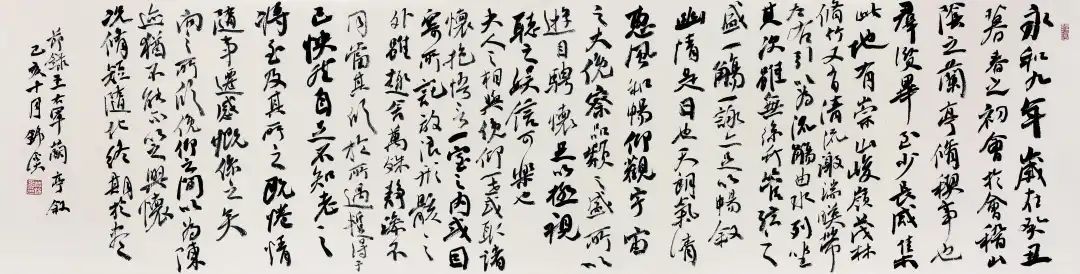 永和九年歲在癸丑
暮春之初會於會稽山
陰之蘭亭修禊事也
群賢畢至少長咸集
此地有崇山峻嶺茂林
修竹又有清流激湍映帶
左右引以為流觴曲水列坐
其次雖無絲竹管弦之
盛一觴一詠亦足以暢敘
幽情是日也天朗氣清
惠風和暢仰觀宇宙
之大俯察品類之盛所以
遊目騁懷足以極視
聽之娛信可樂也
夫人之相與俯仰一世或取諸
懷抱悟言一室之內或因
寄所託放浪形骸之
外雖趣舍萬殊靜躁不
同當其欣於所遇暫得於
己快然自足不知老之
將至及其所之既倦情
隨事遷感慨係之矣
向之所欣俯仰之間以為陳
迹猶不能不以之興懷
況修短隨化終期於盡
節錄王右軍蘭亭敘
己亥十月